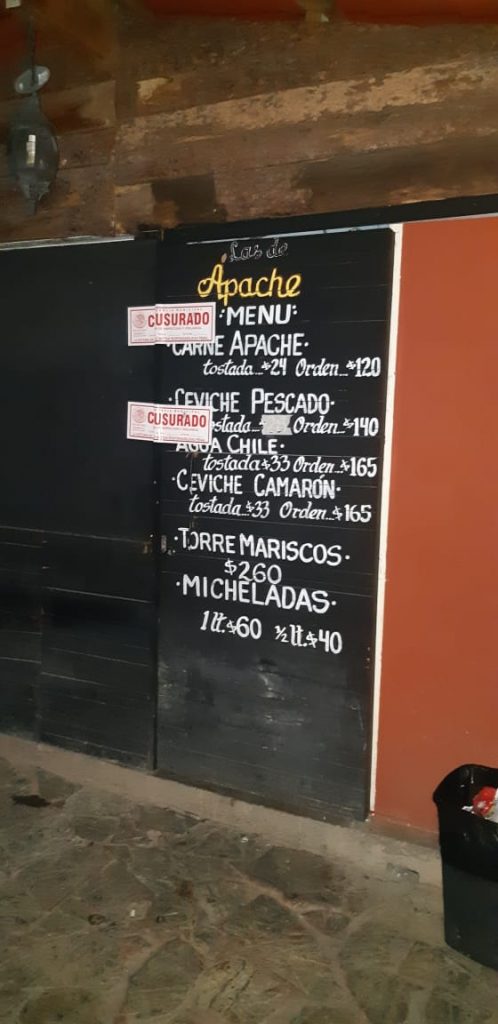 Las de
Apache
·MENU·
CUSURADO
CARNE APACHE·
tostada...$24 Orden...$120
·CEVICHE PESCADO·
CUSURADO
tostada... Orden...$140
AGUA CHILE·
tostada $33 Orden...$165
·CEVICHE CAMARÓN·
tostada...$33 Orden...$165
·TORRE MARISCOS·
$260
·MICHELADAS·
1 lt.$60 ½ lt.$40